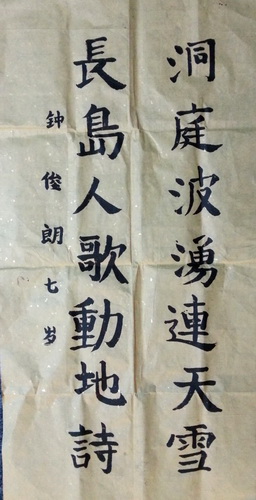 洞庭波湧連天雪
長島人歌動地詩
鍾俊朗七岁